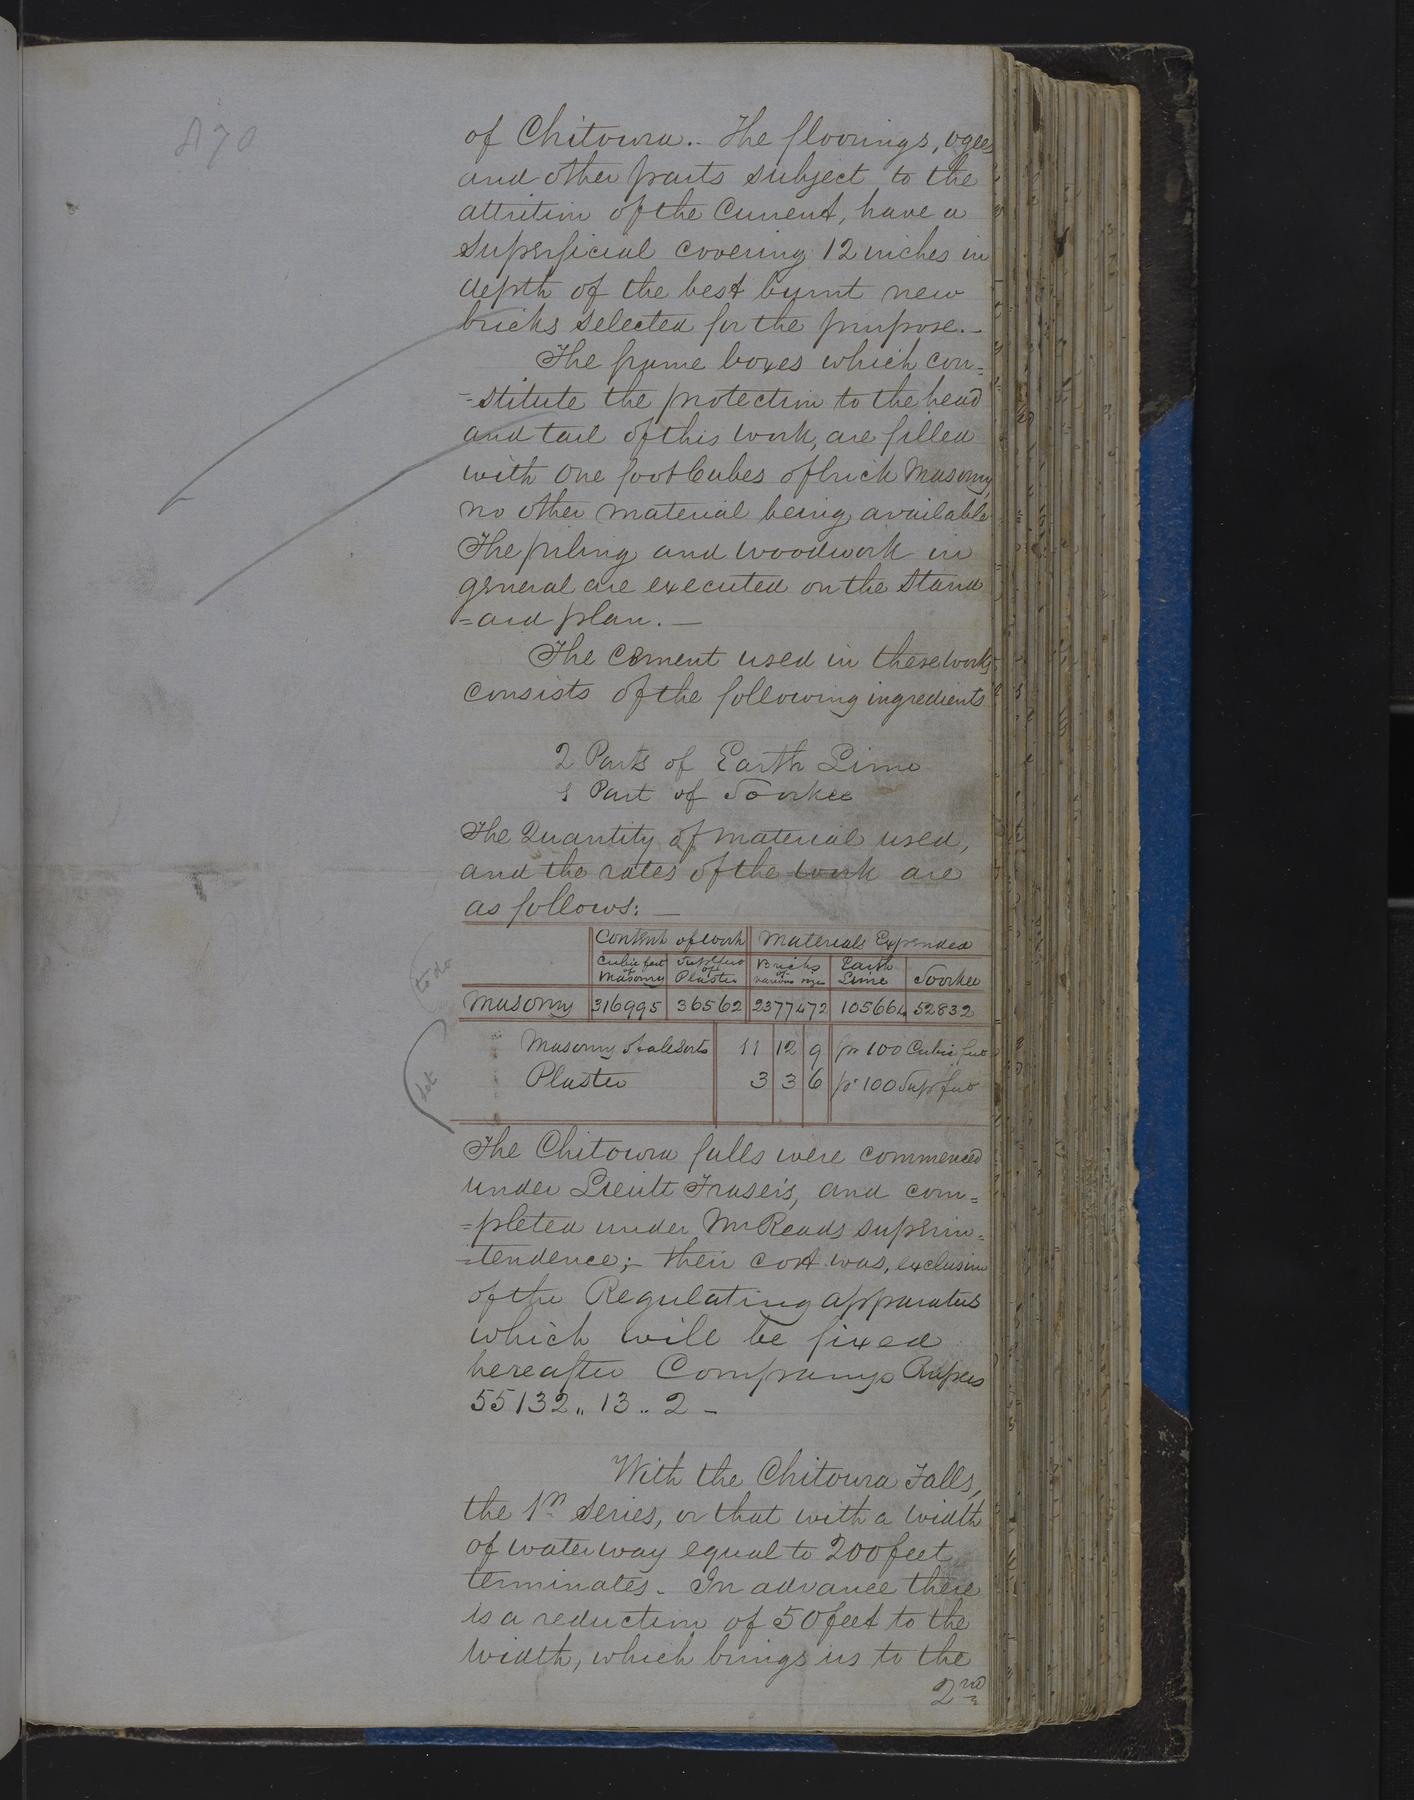 870
of Chitowra.. The floorings, ogees
and other parts subject to the
attrition of the Current, have a
superficial covering 12 inches in
depth of the best burnt new
bricks selected for the purpose.-
The frame boxes which con=
=stitute the protection to the head
and tail of this work, are filled
with one foot Cubes of brick Masonry,
no other material being available
The piling and woodwork in
general are executed on the stand
=ard plan.-
The cement used in these works
consists of the following ingredients
2 Parts of Earth Lime
1 Part of Soorkee
The Quantity of material used,
and the rates of the work are
as follows:-
Content of work Materials Expended
Cubic feet of Masonry Suplfeet of Plaster Bricks of various sizes Earth Lime Soorkee
to do
Masonry 316995 36562 2377472 105664 52832
Masonry of all Sorts 11 12 9 pr 100 Cubic feet
Plaster 3 3 6 pr 100 Sup feet
The Chitowra falls were commenced
under Lieutt Fraser's, and com=
=pleted under Mr Reads superin=
=tendence;- their cost was, exclusive
of the Regulating apparatus
which will be fixed
hereafter Companys Rupees
55132.. 13.. 2 -
With the Chitowra Falls,
the 1st Series, or that with a width
of waterway equal to 200 feet
terminates. In advance there
is a reduction of 50 feet to the
width, which brings us to the
2nd